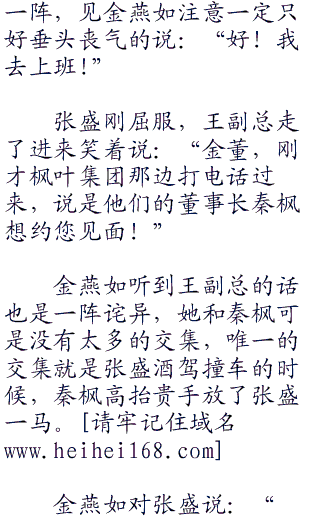 一阵，见金燕如注意一定只
好垂头丧气的说：“好！我
去上班！”
张盛刚屈服，王副总走
了进来笑着说：“金董，刚
才枫叶集团那边打电话过
来，说是他们的董事长秦枫
想约您见面！”
金燕如听到王副总的话
也是一阵诧异，她和秦枫可
是没有太多的交集，唯一的
交集就是张盛酒驾撞车的时
候，秦枫高抬贵手放了张盛
一马。[请牢记住域名
www.heihei168.com]
金燕如对张盛说：“